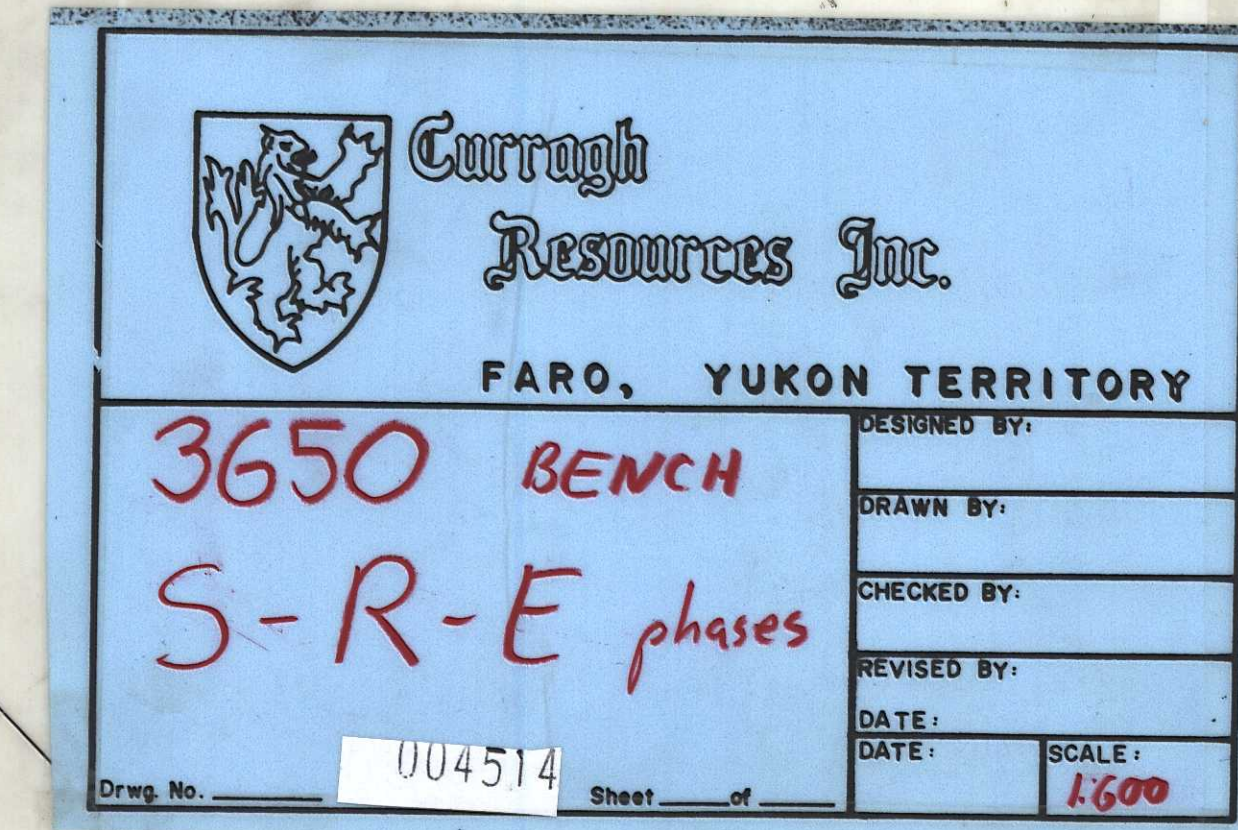 Curragh
Resources Inc.
FARO, YUKON TERRITORY
3650 BENCH
S-R-E phases
DESIGNED BY:
DRAWN BY:
CHECKED BY:
REVISED BY:
DATE:
DATE:
SCALE:
1:600
004514
Drwg. No.
Sheet of